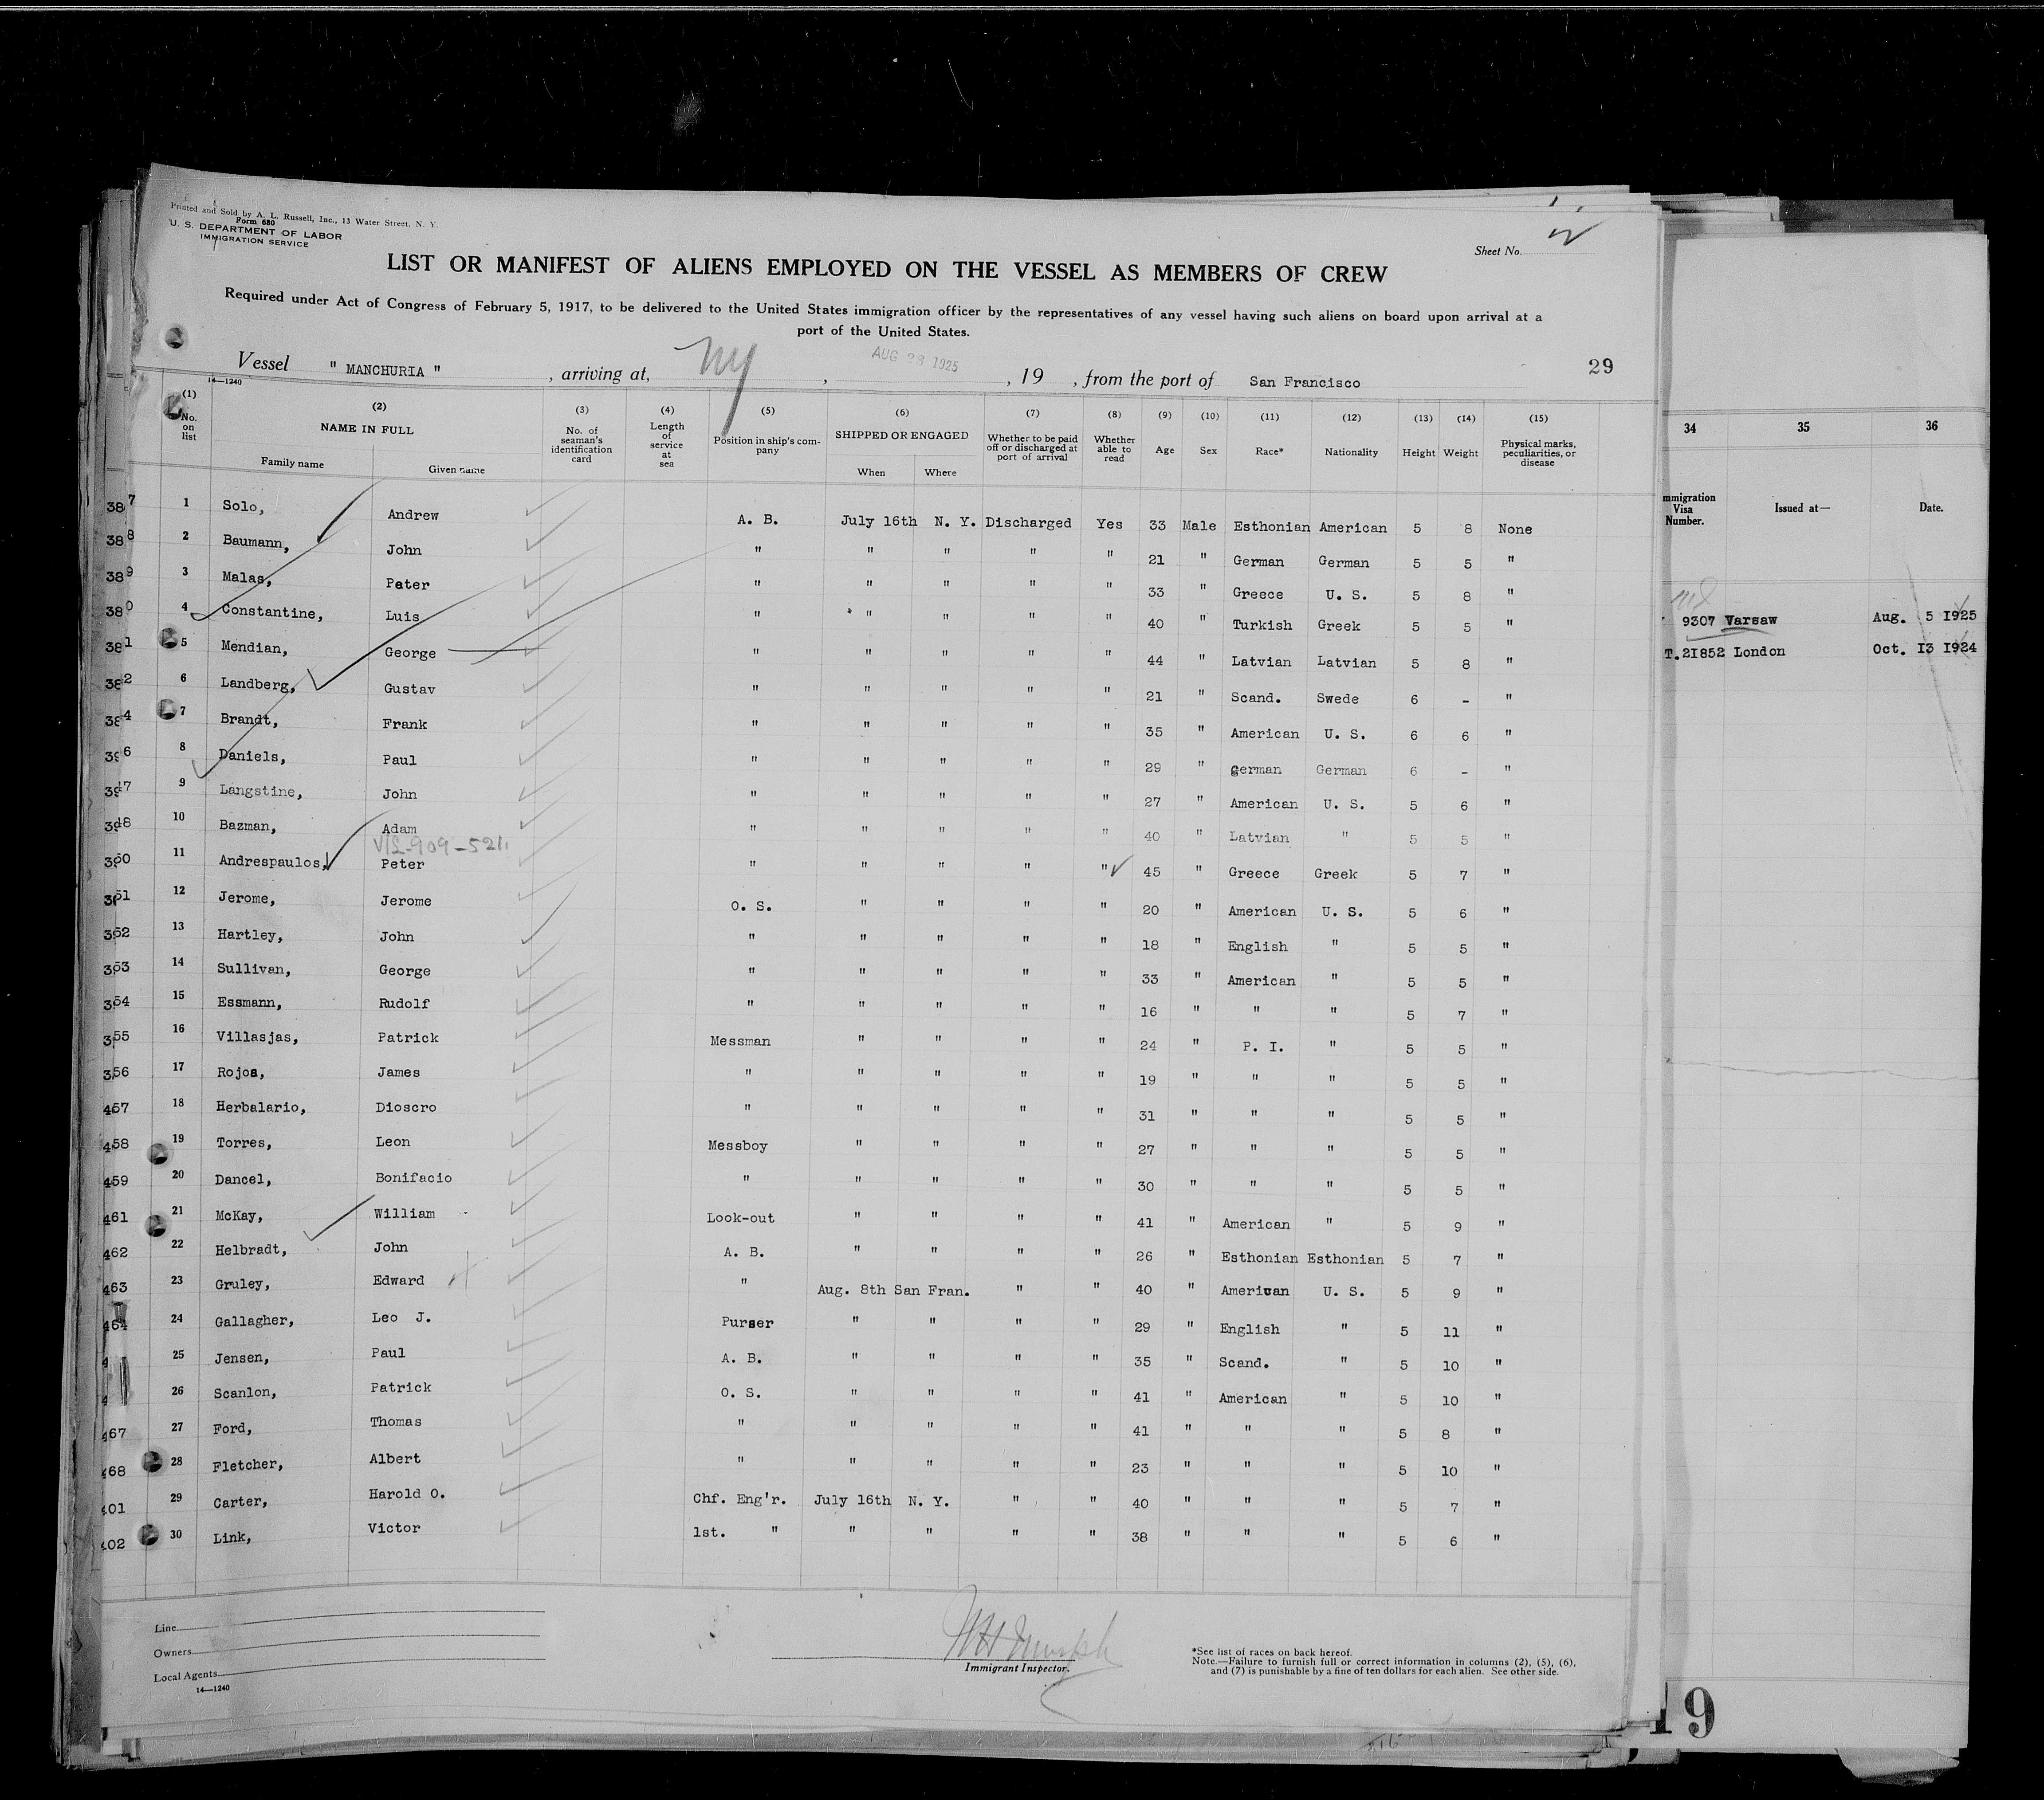 Printed and Sold by A. L. Russell, Inc., 13 Water Street, N. Y.
Form 680
U. S. DEPARTMENT OF LABOR
IMMIGRATION SERVICE
Sheet No.
LIST OR MANIFEST OF ALIENS EMPLOYED ON THE VESSEL AS MEMBERS OF CREW
Required under Act of Congress of February 5, 1917, to be delivered to the United States immigration officer by the representatives of any vessel having such aliens on board upon arrival at a
port of the United States.
Vessel " MANCHURIA " , arriving at, NY , AUG 1925 , 19 , from the port of San Francisco 29
14—1240
(1) No. on list (2) NAME IN FULL Family name Given name (3) No. of seaman's identification card (4) Length of service at sea (5) Position in ship's company (6) SHIPPED OR ENGAGED When Where (7) Whether to be paid off or discharged at port of arrival (8) Whether able to read (9) Age (10) Sex (11) Race* (12) Nationality (13) Height (14) Weight (15) Physical marks, peculiarities, or disease
1 Solo, Andrew A. B. July 16th N. Y. Discharged Yes 33 Male Esthonian American 5 8 None
2 Baumann, John " " " " " 21 " German German 5 5 "
3 Malas, Peter " " " " " 33 " Greece U. S. 5 8 "
4 Constantine, Luis " " " " " 40 " Turkish Greek 5 5 "
5 Mendian, George " " " " " 44 " Latvian Latvian 5 8 "
6 Landberg, Gustav " " " " " 21 " Scand. Swede 6 - "
7 Brandt, Frank " " " " " 35 " American U. S. 6 6 "
8 Daniels, Paul " " " " " 29 " german German 6 - "
9 Langstine, John " " " " " 27 " American U. S. 5 6 "
10 Bazman, Adam " " " " " 40 " Latvian " 5 5 "
11 Andrespaulos, Peter " " " " " 45 " Greece Greek 5 7 "
12 Jerome, Jerome O. S. " " " " 20 " American U. S. 5 6 "
13 Hartley, John " " " " " 18 " English " 5 5 "
14 Sullivan, George " " " " " 33 " American " 5 5 "
15 Essmann, Rudolf " " " " " 16 " " " 5 7 "
16 Villasjas, Patrick Messman " " " " 24 " P. I. " 5 5 "
17 Rojos, James " " " " " 19 " " " 5 5 "
18 Herbalario, Dioscro " " " " " 31 " " " 5 5 "
19 Torres, Leon Messboy " " " " 27 " " " 5 5 "
20 Dancel, Bonifacio " " " " " 30 " " " 5 5 "
461 21 McKay, William - Look-out " " " " 41 " American " 5 9 "
462 22 Helbradt, John A. B. " " " " 26 " Esthonian Esthonian 5 7 "
463 23 Gruley, Edward " Aug. 8th San Fran. " " 40 " American U. S. 5 9 "
464 24 Gallagher, Leo J. Purser " " " " 29 " English " 5 11 "
25 Jensen, Paul A. B. " " " " 35 " Scand. " 5 10 "
26 Scanlon, Patrick O. S. " " " " 41 " American " 5 10 "
467 27 Ford, Thomas " " " " " 41 " " " 5 8 "
468 28 Fletcher, Albert " " " " " 23 " " " 5 10 "
401 29 Carter, Harold O. Chf. Eng'r. July 16th N. Y. " " 40 " " " 5 7 "
402 30 Link, Victor 1st. " " " " " 38 " " " 5 6 "
Line
Owners
Local Agents
14—1240
Immigrant Inspector.
*See list of races on back hereof.
Note.—Failure to furnish full or correct information in columns (2), (5), (6),
and (7) is punishable by a fine of ten dollars for each alien. See other side.
34 35 36
mmigration Visa Number. Issued at— Date.
9307 Varsaw Aug. 5 1925
T.21852 London Oct. 13 1924
19